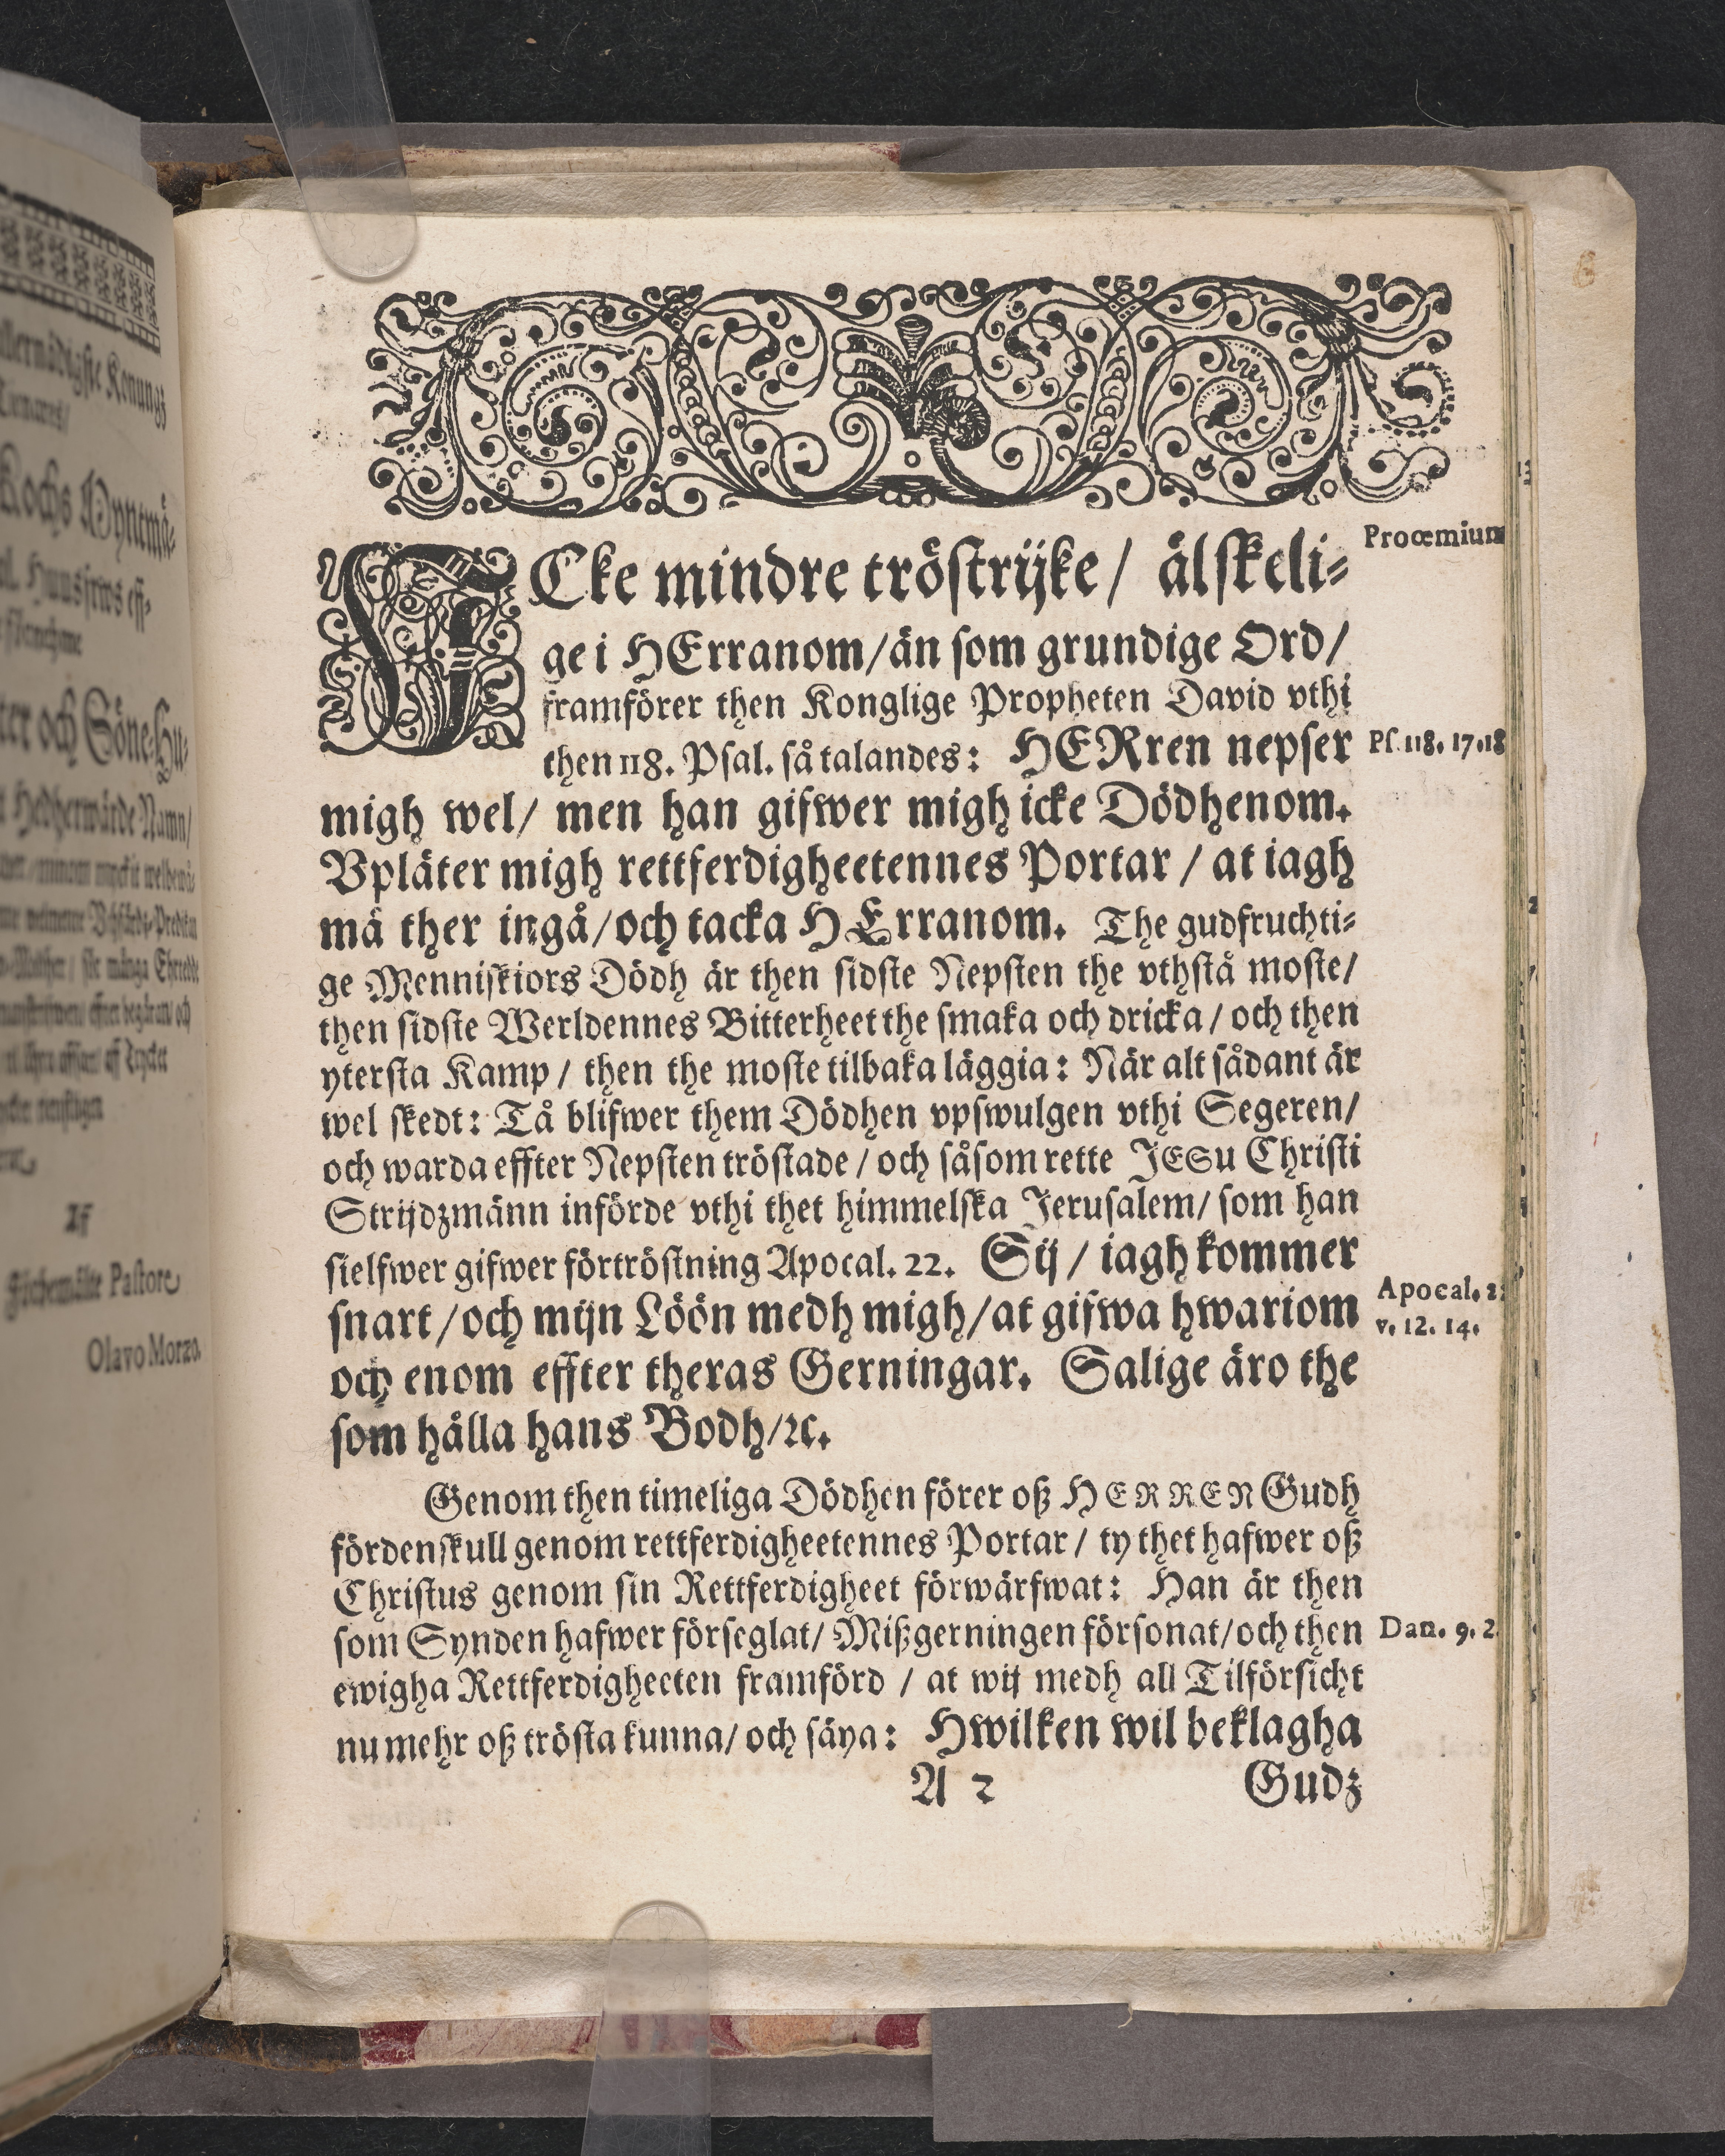 allernådigste Konungz
Kochs Myntmä-
ter och Söne-Hu-
Pastore
Olavo Morzo.
Procemium
ICke mindre tröstrijke / älskeli-
ge i HErranom/än som grundige Ord/
framförer then Konglige Propheten David vthi
then 118. Psal. så talandes: HERren nepser
Ps. 118. 17.18
migh wel/ men han gifwer migh icke Dödhenom.
Vpläter migh rettferdigheetennes Portar / at iagh
må ther ingå/och tacka HErranom. The gudfruchti-
ge Menniskiors Dödh är then sidste Nepsten the vthstå moste/
then sidste Werldennes Bitterheet the smaka och dricka / och then
ytersta Kamp / then the moste tilbaka läggia: När alt sådant är
wel skedt: Tå blifwer them Dödhen vpswulgen vthi Segeren/
och warda effter Nepsten tröstade / och såsom rette JESu Christi
Strijdzmänn införde vthi thet himmelska Jerusalem/ som han
sielfwer gifwer förtröstning Apocal. 22. Sij / iagh kommer
Apocal. 2
snart /och mijn Löön medh migh/at gifwa hwariom
v. 12. 14.
och enom effter theras Gerningar. Salige äro the
som hålla hans Bodh/ꝛc.
Genom then timeliga Dödhen förer oß HERREN Gudh
fördenskull genom rettferdigheetennes Portar / ty thet hafwer oß
Christus genom sin Rettferdigheet förwärfwat: Han är then
som Synden hafwer förseglat/ Mißgerningen försonat/och then
Dan. 9. 2
ewigha Rettferdigheeten framförd / at wij medh all Tilförsicht
nu mehr oß trösta kunna/ och säya: Hwilken wil beklagha
A 2 Gudz